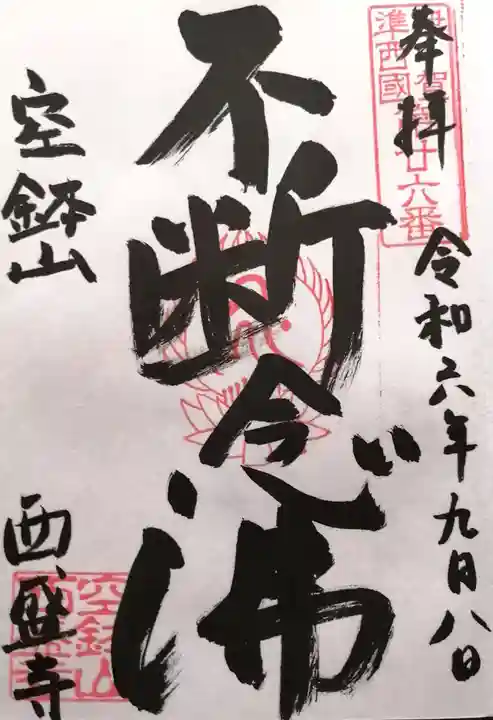 奉拝
令和六年九月八日
伊賀
準西國
第廿六番
不断念佛
空鉢山
西盛寺
空鉢山
西盛寺